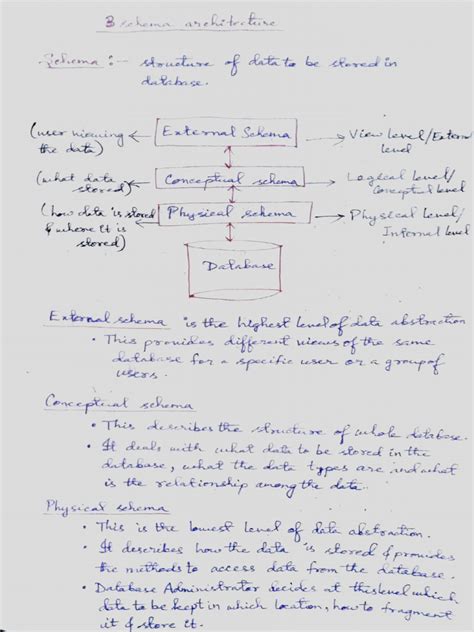 3 schema architecture
Schema :- structure of data to be stored in
database.
(user viewing
the data)
External Schema
View level/External
level
(what data
stored)
Conceptual schema
Logical Level/
Conceptual level
(how data is stored
& where it is
stored)
Physical schema
Physical Level/
Internal level
Database
External schema is the highest level of data abstraction
• This provides different views of the same
database for a specific user or a group of
users.
Conceptual schema
• This describes the structure of whole database.
• It deals with what data to be stored in the
database, what the data types are and what
is the relationship among the data.
Physical schema
• This is the lowest level of data abstraction.
• It describes how the data is stored & provides
the methods to access data from the database.
• Database Administrator decides at this level which
data to be kept in which location, how to fragment
it & store it.